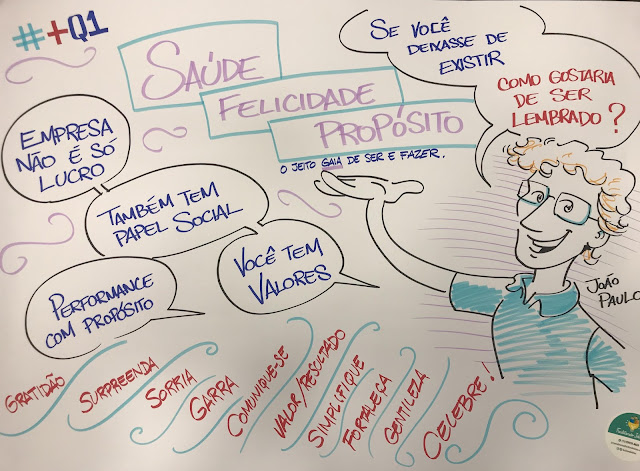 #+Q1
SAÚDE
FELICIDADE
PROPÓSITO
O JEITO GAIA DE SER E FAZER.
SE VOCÊ
DEIXASSE DE
EXISTIR
COMO GOSTARIA
DE SER
LEMBRADO?
EMPRESA
NÃO É SÓ
LUCRO
TAMBÉM TEM
PAPEL SOCIAL
VOCÊ TEM
VALORES
PERFORMANCE
COM PROPÓSITO
JOÃO
PAULO
GRATIDÃO
SURPREENDA
SORRIA
GARRA
COMUNIQUE-SE
VALOR/RESULTADO
SIMPLIFIQUE
FORTALEÇA
GENTILEZA
CELEBRE!